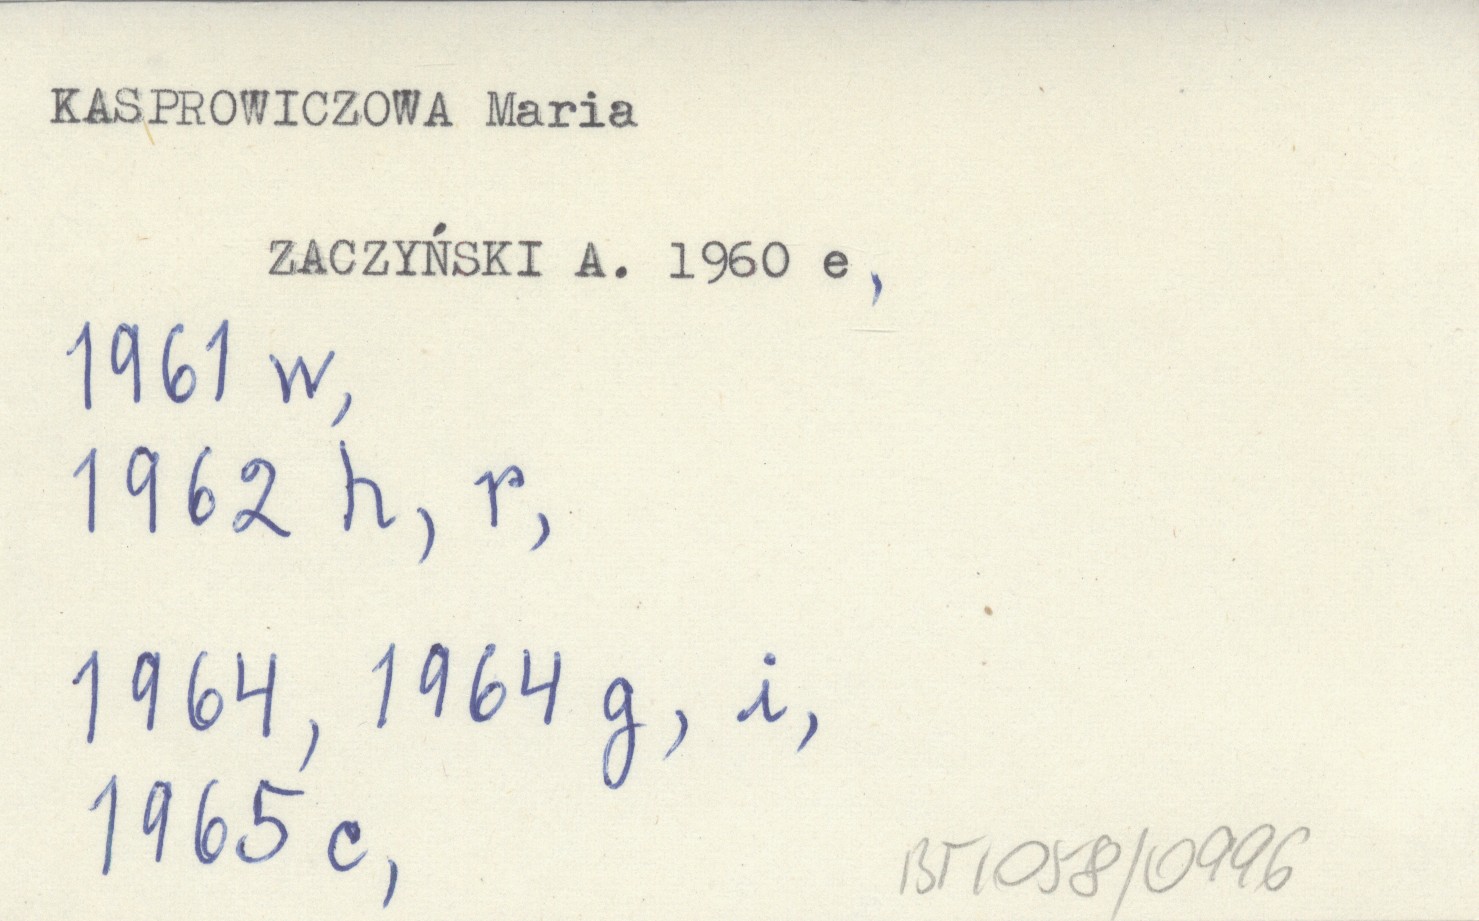 KASPROWICZOWA Maria
ZACZYŃSKI A. 1960 e,
1961 w,
1962 h, r,
1964, 1964 g, i,
1965 c,
BT1058/0996